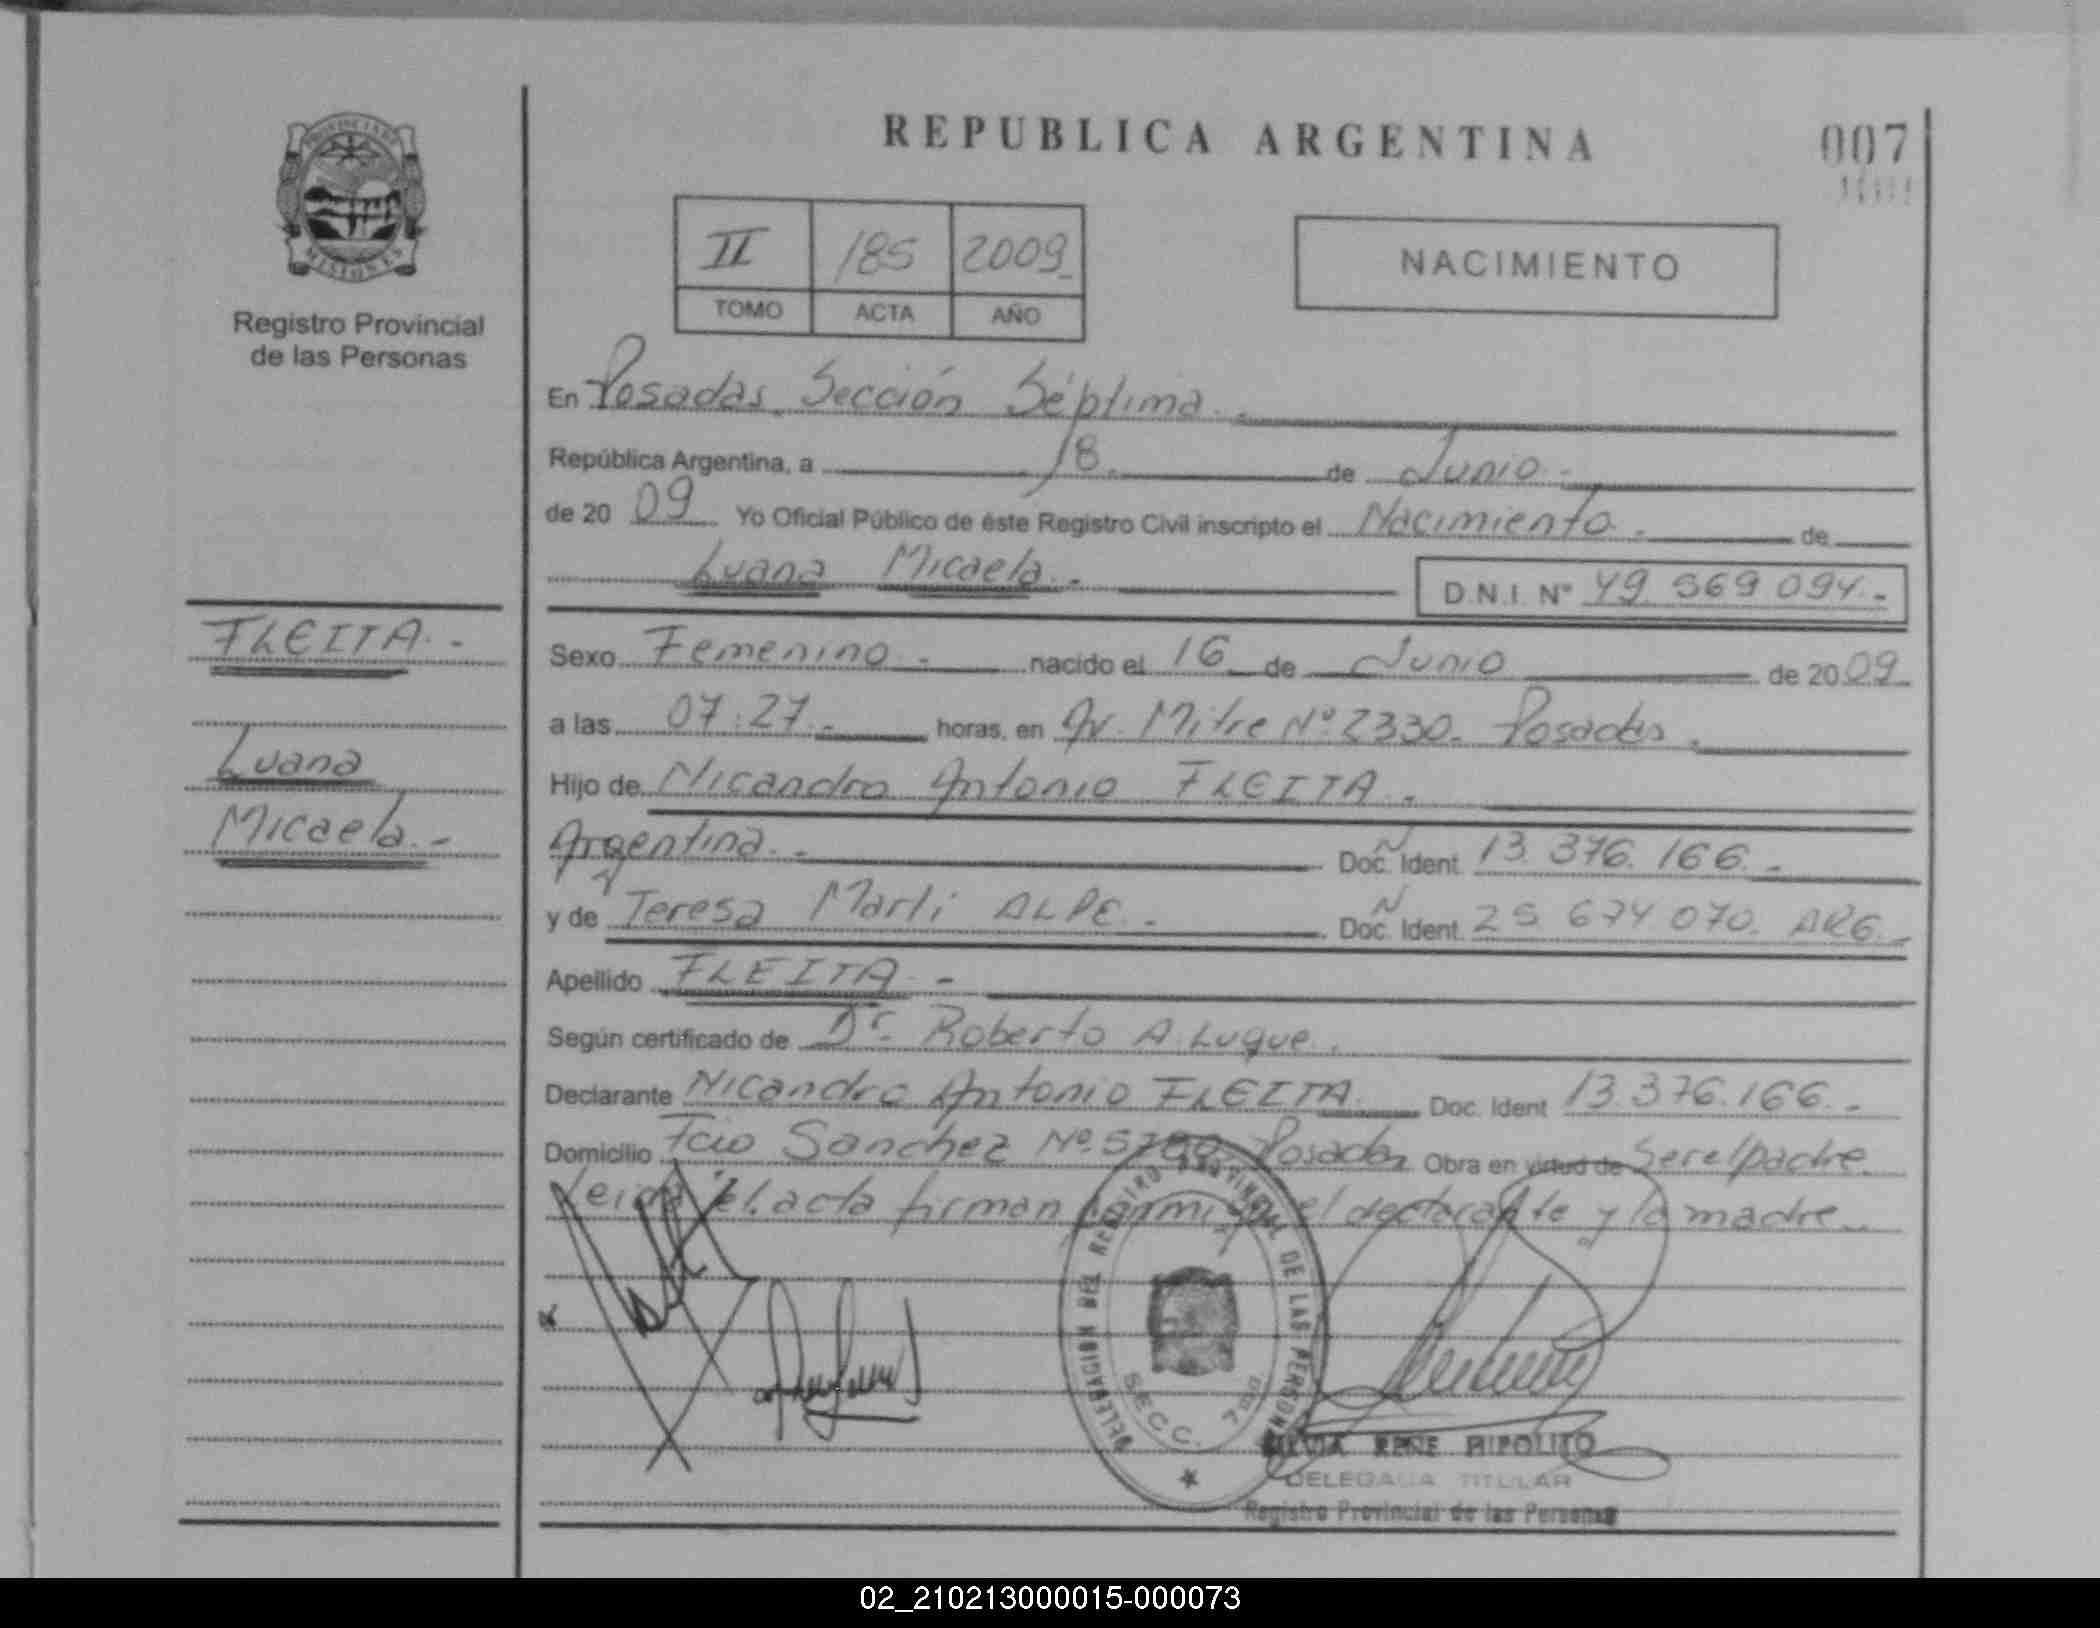 REPUBLICA ARGENTINA
007
PROVINCIA DE
MISIONES
Registro Provincial
de las Personas
II 185 2009
TOMO ACTA AÑO
NACIMIENTO
En Posadas Sección Séptima.
República Argentina, a 18 de Junio
de 20 09 Yo Oficial Público de éste Registro Civil inscripto el Nacimiento de
Luana Micaela.-
D.N.I. Nº 49 569 094.-
FLEITA.-
Luana
Micaela.-
Sexo Femenino.- nacido el 16 de Junio de 2009
a las 07:27.- horas, en Av. Mitre Nº 2330. Posadas.
Hijo de Nicandro Antonio FLEITA.-
Argentina.- Doc. Ident. 13.376.166.-
y de Teresa Marli ALPE.- Doc. Ident. 25 674 070. ARG.-
Apellido FLEITA.-
Según certificado de Dr. Roberto A. Luque.
Declarante Nicandro Antonio FLEITA. Doc. Ident 13.376.166.-
Domicilio Fcio Sanchez Nº Posadas Obra en virtud de Ser el padre.
Leida el acta firman conmigo el declarante y la madre.
DELEGACION DEL REGISTRO PROVINCIAL DE LAS PERSONAS
SECC. 7ma
SILVIA RENE HIPOLITO
DELEGADA TITULAR
Registro Provincial de las Personas
02_210213000015-000073